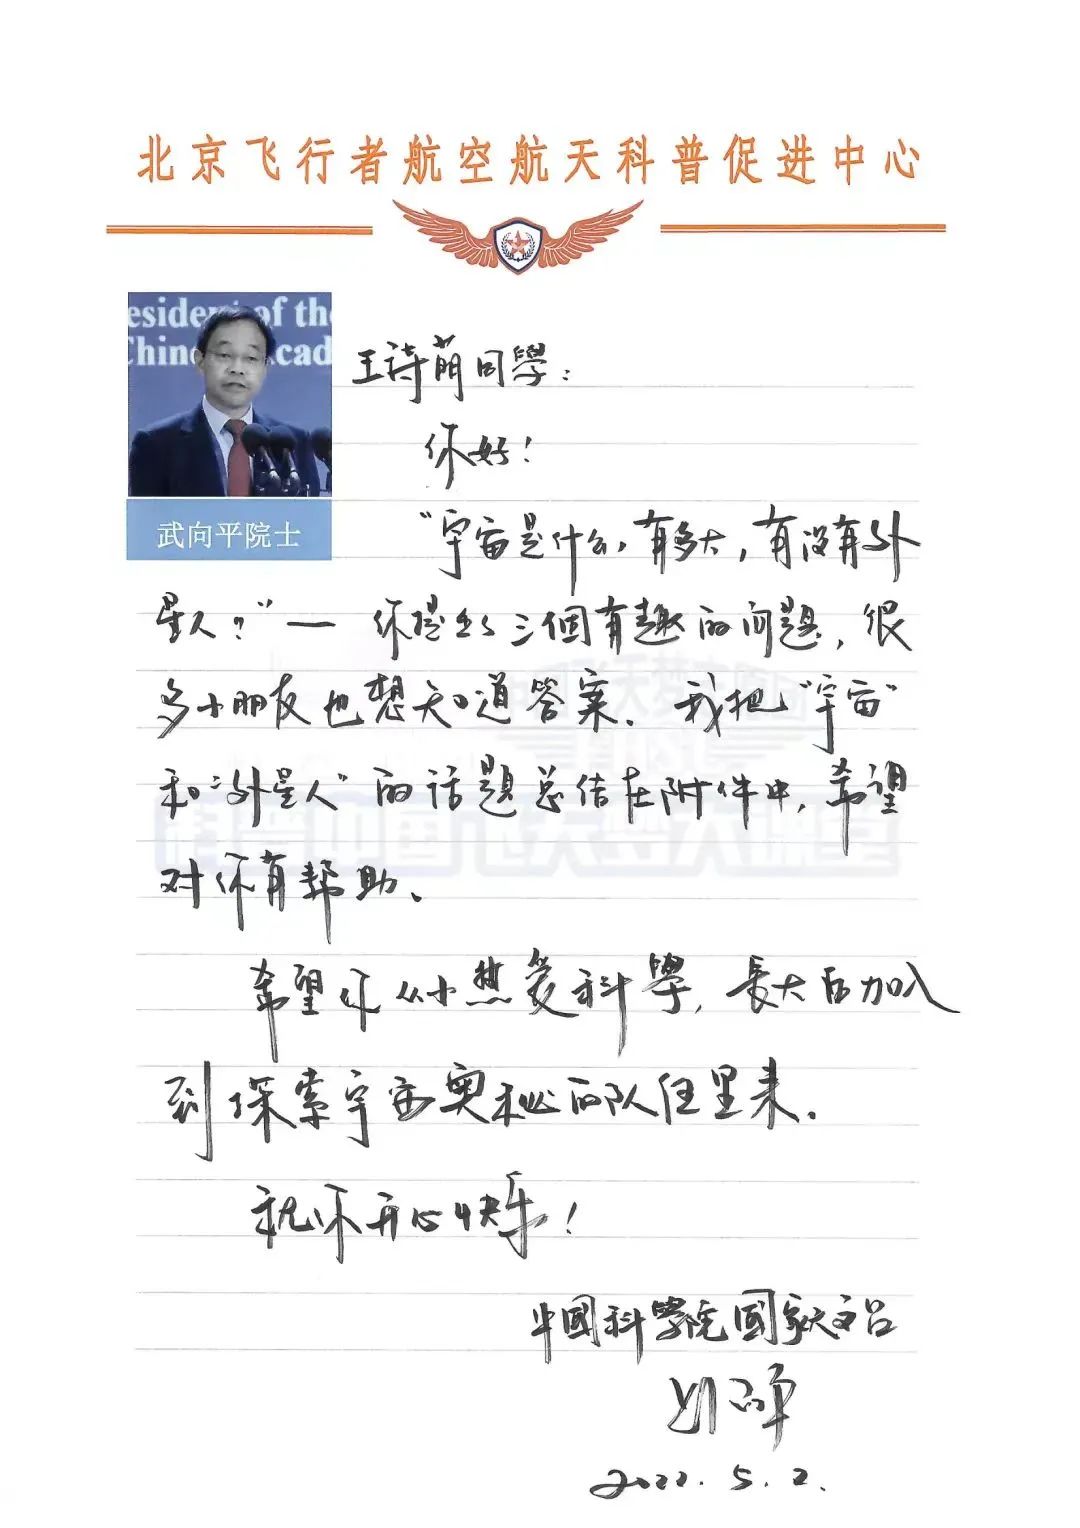 北京飞行者航空航天科普促进中心
esident of the
Chin Acad
武向平院士
王诗萌同學：
你好！
“宇宙是什么，有多大，有没有外
星人？”— 你提出了三個有趣的问题，很
多小朋友也想知道答案。我把“宇宙”
和“外星人”的话题总结在附件中，希望
对你有帮助。
希望你从小热爱科學，長大后加入
到探索宇宙奥秘的队伍里来。
祝你开心快乐！
中國科學院國家天文台
2022.5.2.